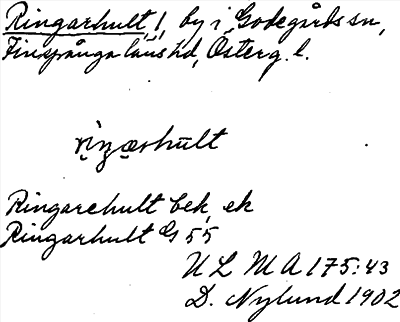 Ringarhult, !, by i Godegårds sn,
Finspånga läns hd, Österg. l.
riŋarhult
Ringarehult bek, ek
Ringarhult GS 55
ULMA 175:43
D. Nylund 1902